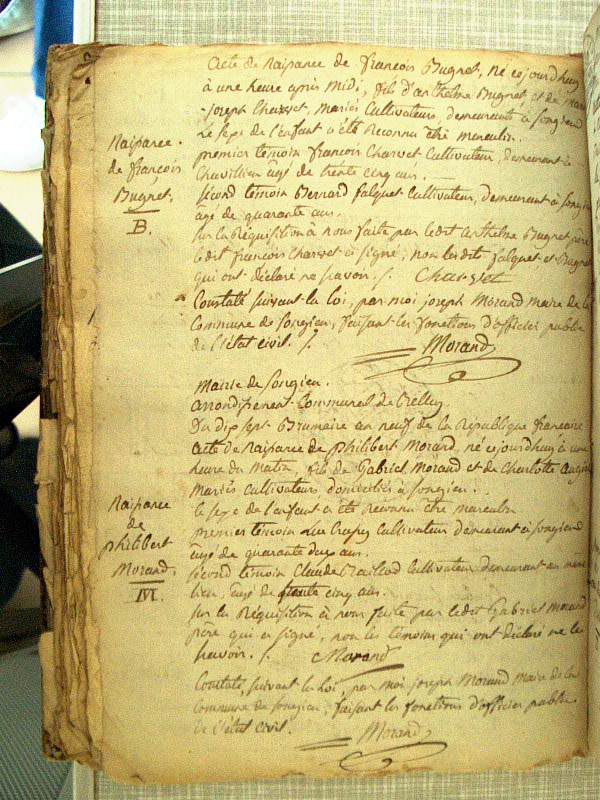 Acte de Naissance de françois Bugnet, Né cejourdhuy
à une heure après Midi, fils d'anthelme Bugnet et de Marie
joseph Charvet, Mariés Cultivateurs, demeurants à songieu
Le sexe de l'enfant a été Reconnu être masculin.
premier témoin françois Charvet Cultivateur, demeurant à
Chavillieu agé de trente cinq ans.
Naissance
de françois
Bugnet,
B.
second témoin Bernard falquet Cultivateur, demeurant à songieu
agé de quarante ans.
sur la Réquisition à nous faite par ledit anthelme Bugnet père
ledit françois Charvet a signé, non lesdit falquet et Bugnet
qui ont déclaré ne savoir. /. Charvet
Constaté suivant la loi, par moi joseph Morand maire de la
Commune de Songieu, faisant les fonctions d'officier public
de l'état civil. /.
Morand
Mairie de songieu.
arrondissement Communal de Belley
Du dix sept Brumaire an neuf de la République francaise
acte de Naissance de philibert Morand, né cejourdhuy à une
heure du Matin, fils de Gabriel Morand et de Charlotte
Mariés cultivateurs domiciliés à songieu.
Naissance
de
philibert
Morand,
M.
le sexe de l'enfant a été reconnu être masculin
premier témoin Luc Cultivateur demeurant à songieu
agé de quarante deux ans.
second témoin Claude Cultivateur demeurant au même
lieu agé de cinq ans.
sur la Réquisition à nous faite par ledit Gabriel Morand
père qui a signé, non les témoins qui ont déclaré ne le
savoir. /. Morand
Constaté, suivant la Loi, par moi joseph Morand maire de la
commune de songieu, faisant les fonctions d'officier public
de l'état civil.
Morand